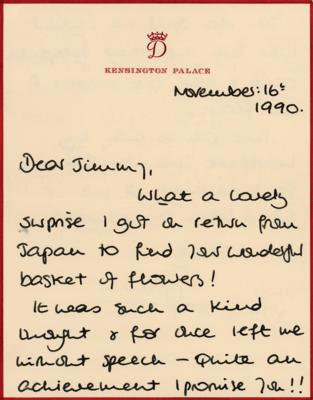 D
KENSINGTON PALACE
November: 16th
1990.
Dear Jimmy,
What a lovely
surprise I got on return from
Japan to find your wonderful
basket of flowers!
It was such a kind
thought & for once left me
without speech - Quite an
achievement I promise you!!